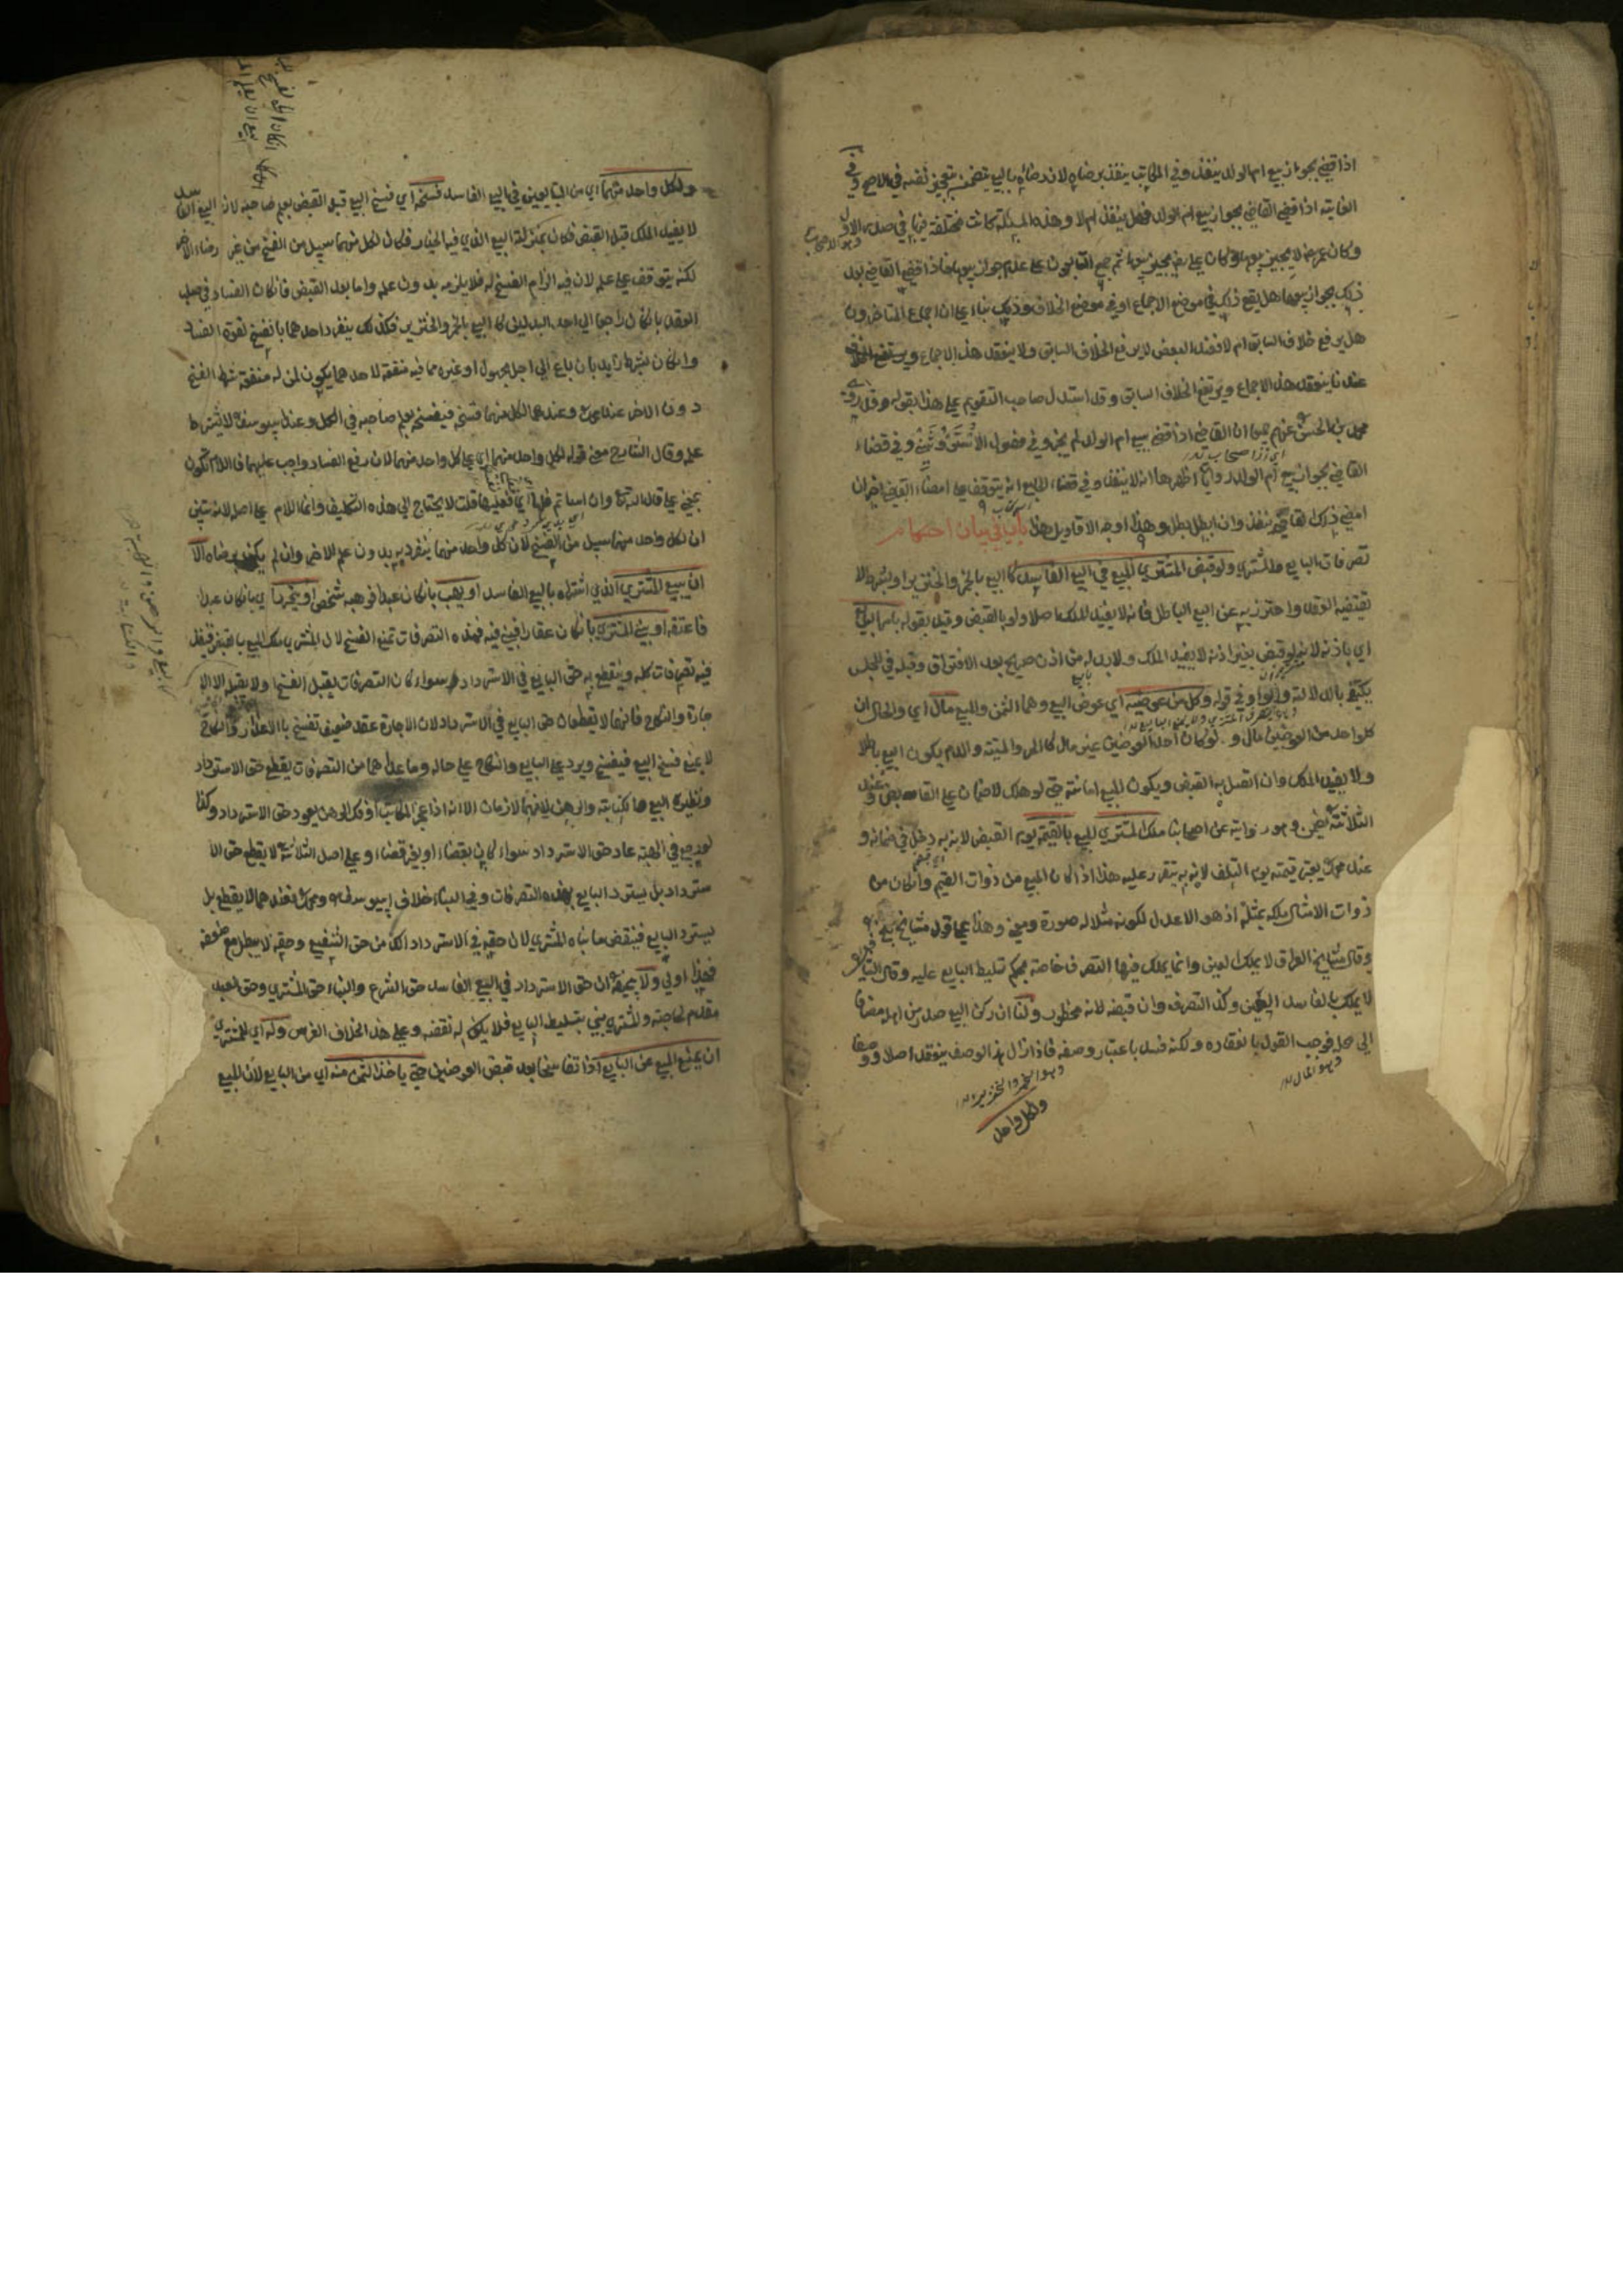 اذا قضي بجواز بيع ام الولد ينفذ وفي المكاتب ينفذ برضاه لان رضاه بالبيع يتضمن تعجيز نفسه في الاصح وفي
اذا قضي القاضي بجواز بيع ام الولد فهل ينفذ ام لا وهذه المسئلة كانت مختلفة فيها في صدر الاول
وكان عمر رضه لا يجيز بيعها وكان علي رضه يجيز بيعها ثم اجمع التابعون على عدم جواز بيعها فاذا قضي القاضي بعد
ذلك بجواز بيعها هل يقع ذلك في موضع الاجماع او في موضع الخلاف وذلك بناء على ان اجماع المتاخرون
هل يرفع خلاف السابق ام لا فعند البعض لا يرفع الخلاف السابق ولا ينعقد هذا الاجماع
عندنا ينعقد هذا الاجماع ويرتفع الخلاف السابق وقد استدل صاحب التقويم على هذا بقوله وقد روي
محمد بن الحسن عنهم جميعا ان القاضي اذا قضي ببيع ام الولد لم يجز وفي فصول الاستروشني وفي قضاء
القاضي بجواز بيع ام الولد روايات اظهرها انه لا ينفذ وفي قضاء الجامع انه يتوقف على امضاء القاضي اخر ان
امضي ذلك القاضي ينفذ وان ابطل بطل وهذا اوجه الاقاويل هذا باب في بيان احكام
تصرفات البايع والمشتري ولو قبض المشتري المبيع في البيع الفاسد كالبيع بالخمر والخنزير او بشرط لا
يقتضيه العقد واحترز به عن البيع الباطل فانه لا يفيد الملك اصلا ولو بالقبض وقيد بقوله بامر البايع
اي باذنه لانه لو قبض بغير اذنه لا يفيد الملك ولا بد له من اذن صريح بعد الافتراق وقبله في المجلس
يكتفي بالدلالة والواو في قوله وكل من عوضيه اي عوض البيع وهما الثمن والمبيع مال اي والحال ان
كل واحد من العوضين مال ولو كان احد العوضين غير مال كالحر والميتة والدم يكون البيع باطلا
ولا يفيد الملك وان اتصل به القبض ويكون المبيع امانة حتى لو هلك لا ضمان على القابض وعند
عن اصحابنا ملك المشتري المبيع بالقيمة يوم القبض لانه به دخل في ضمانه و
عند محمد يعتبر قيمته يوم التلف لانه به يتقرر عليه هذا اذا كان المبيع من ذوات القيم وان كان من
ذوات الامثال يملكه بمثله اذ هو الاعدل لكونه مثلا له صورة ومعنى وهذا على قول مشايخ بلخ
وقال مشايخ العراق لا يملك العين وانما يملك فيها التصرف خاصة بحكم تسليط البايع عليه وقال الشافعي
لا يملك بالفاسد العين وكذا التصرف وان قبضه لانه محظور ولنا ان ركن البيع صدر من اهله مضافا
الى محله فوجب القول بانعقاده ولكنه فسد باعتبار وصفه فاذا زال هذا الوصف ينعقد اصلا ووصفا
وهو المال
وهو الخمر والخنزير
ولكل واحد
ولكل واحد منهما اي من المتبايعين في البيع الفاسد فسخه اي فسخ البيع قبل القبض بعلم صاحبه لان البيع الفاسد
لا يفيد الملك قبل القبض فكان بمنزلة البيع الذي فيه الخيار فكان لكل منهما سبيل من الفسخ من غير رضاء الاخر
لكنه يتوقف على علمه لان فيه الزام الفسخ له فلا يلزمه بدون علمه واما بعد القبض فان كان الفساد في صلب
العقد بان كان راجعا الى احد البدلين كالبيع بالخمر والخنزير فكذلك ينفرد احدهما بالفسخ لقوة الفساد
وان كان بشرط زايد بان باع الى اجل مجهول او غيره مما فيه منفعة لاحدهما يكون لمن له منفعة شرط الفسخ
دون الاخر عند محمد وعندهما لكل منهما فسخه فيفسخ بعلم صاحبه في الكل وعند ابي يوسف لا يشترط
علمه وقال الشارح معنى قوله لكل واحد منهما اي على كل واحد منهما لان رفع الفساد واجب عليهما فاللام تكون
بمعنى على قال الله تعالى وان اسأتم فلها اي فعليها قلت لا يحتاج الى هذه التكليف وانما اللام على اصله لانه تبين
ان لكل واحد منهما سبيل من الفسخ لان كل واحد منهما ينفرد به بدون علم الاخر وان لم يكن برضاه الا
ان يبيع المشتري الذي اشتراه بالبيع الفاسد او يهب بان كان عبدا فوهبه شخصا او يحرر اي بان كان عبدا
فاعتقه او يبني المشتري بان كان عقارا فبنى فيه فهذه التصرفات تمنع الفسخ لان المشتري ملك المبيع بالقبض فينفذ
فيه تصرفات كله وينقطع به حق البايع في الاسترداد سواء كان التصرفات يقبل الفسخ او لا يقبله الا الا
جارة والنكاح فانهما لا يقطعان حق البايع في الاسترداد لان الاجارة عقد ضعيف تفسخ بالاعذار والنكاح
لا يمنع فسخ البيع فيفسخ ويرد على البايع والنكاح على حاله وما عداهما من التصرفات يقطع حق الاسترداد
ونظيره البيع والكتابة والرهن لانهما لازمان الا انه اذا عجز المكاتب او فك الرهن يعود حق الاسترداد وكذا
لو رجع في الهبة عاد حق الاسترداد سواء كان بقضاء او بغير قضاء وعلى اصل الثلاثة لا يقطع حق الا
سترداد بل يسترد البايع بهذه التصرفات وفي البناء خلاف ابي يوسف ومحمد فعندهما لا يقطع بل
يسترد البايع فينقض ما بناه المشتري لان حقه في الاسترداد اكد من حق الشفيع وحقه لا يبطل مع ضعفه
فهذا اولى ولابي حنيفة ان حق الاسترداد في البيع الفاسد حق الشرع والبناء حق المشتري وحق العبد
مقدم لحاجته والمشتري بنى بتسليط البايع فلا يكون له نقضه وعلى هذا الخلاف الغرس وله اي للمشتري
ان يمنع المبيع عن البايع اذا تفاسخا بعد قبض العوضين حتى ياخذ الثمن منه اي من البايع لان المبيع